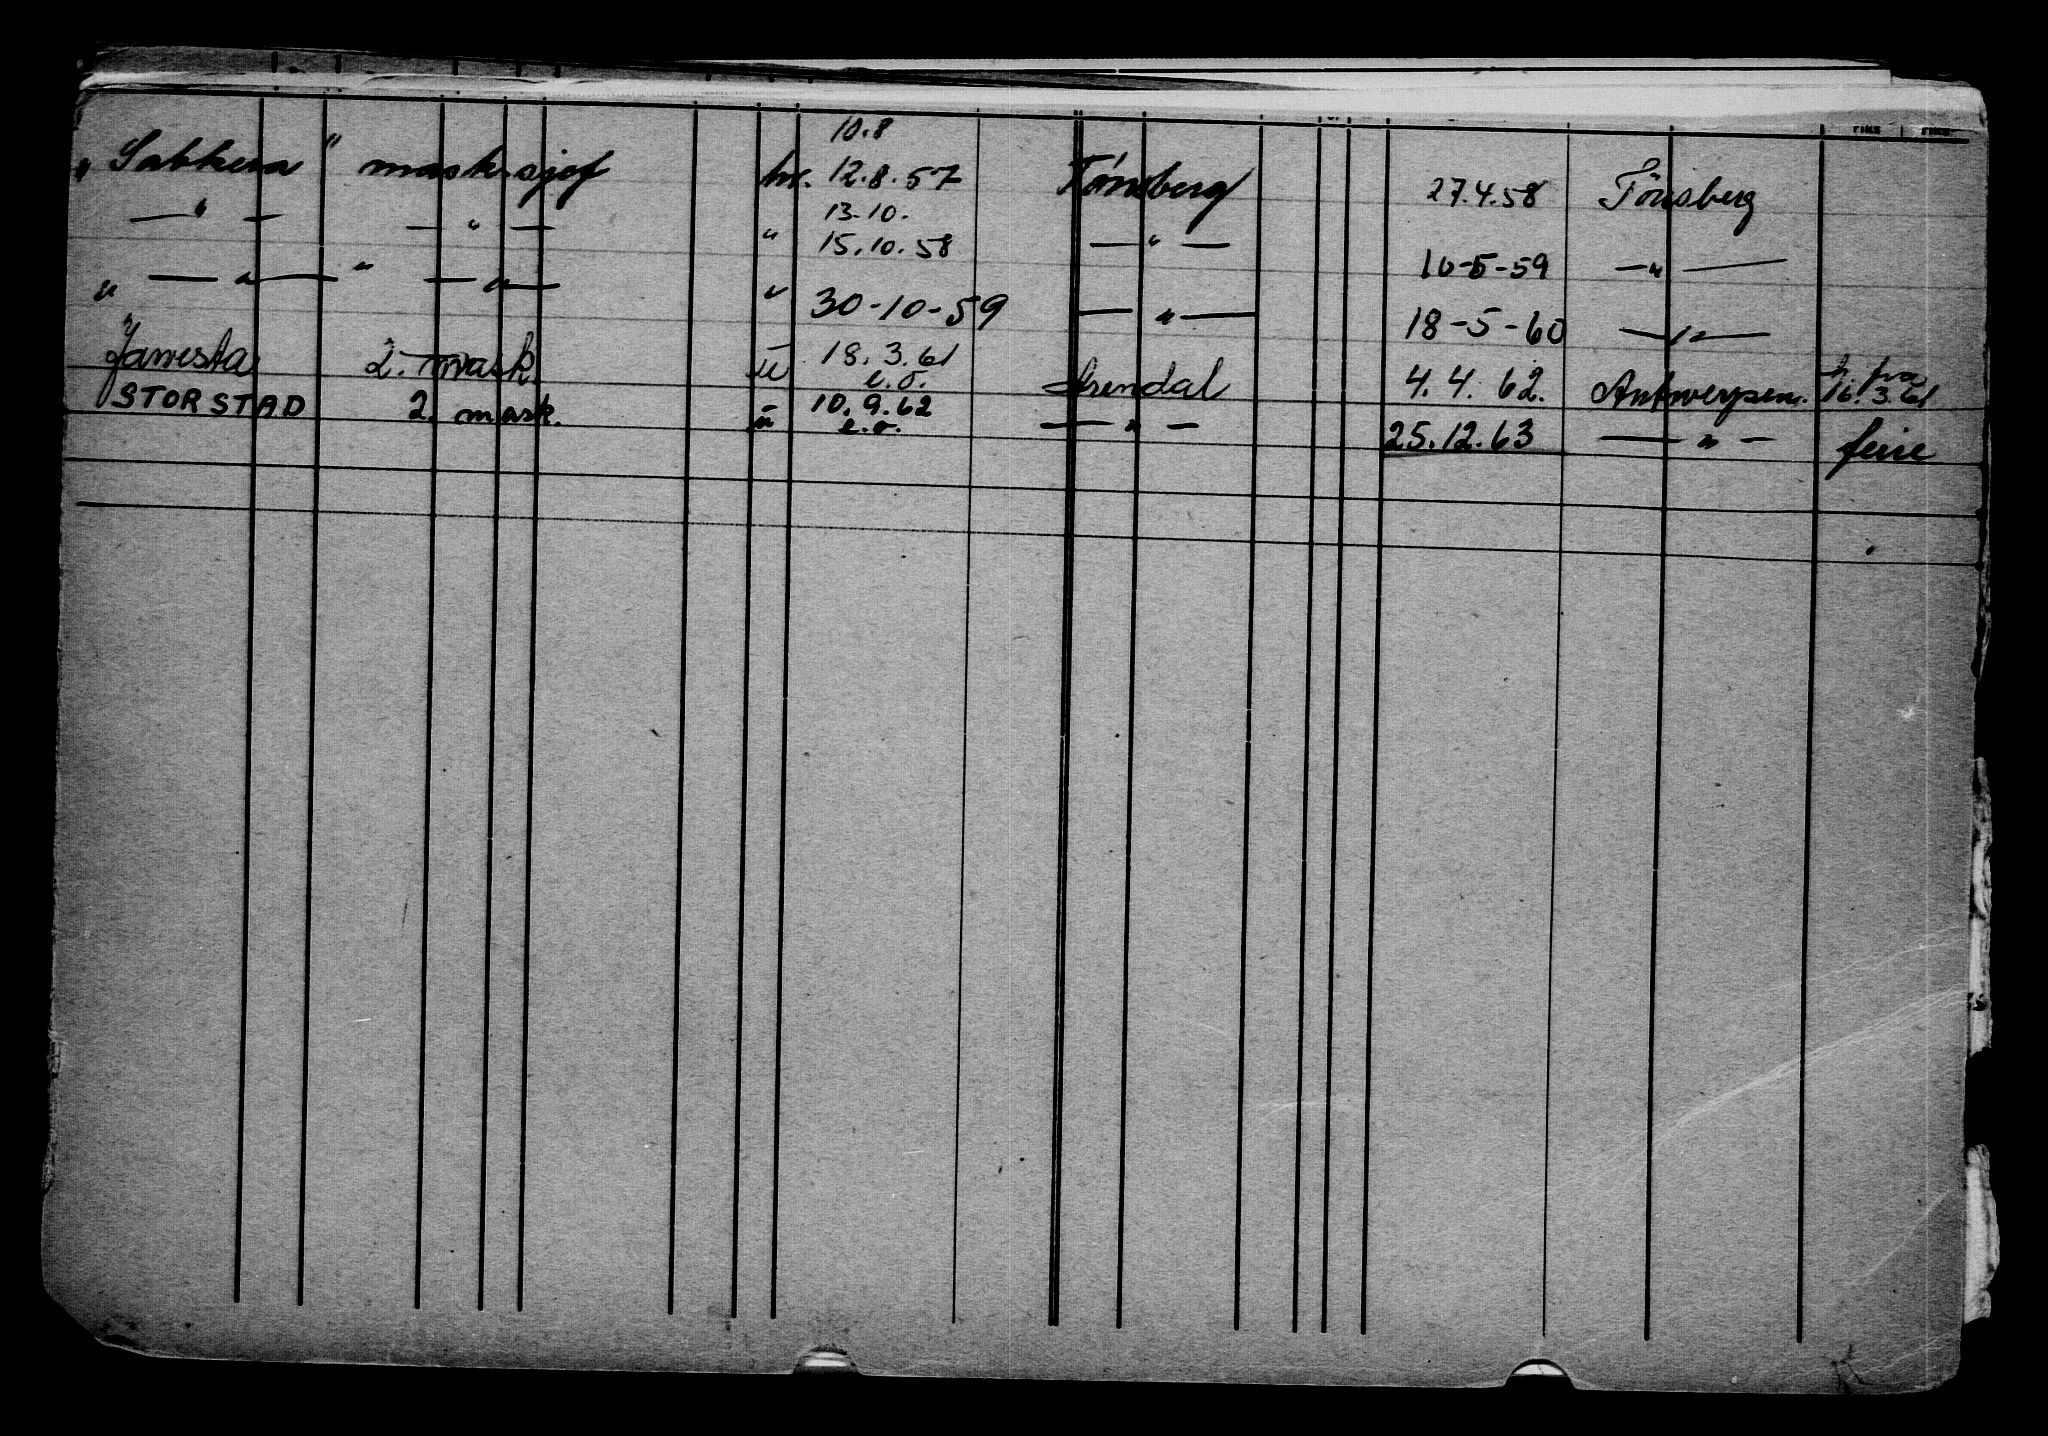 10.8
" Sabkera " mask.sjef hr. 12.8.57 Tønsberg 27.4.58 Tönsberg
13.10.
— " — — " — " 15.10.58 — " — 16-5-59 — " —
" — " — " — " — " 30-10-59 — " — 18-5-60 — " —
Jawesta 2. mask. u 18.3.61 e.o. Arendal 4.4.62. Antwerpen. h. fra 16.3.61
STORSTAD 2. mask. u 10.9.62 e.o. — " — 25.12.63 — " — ferie